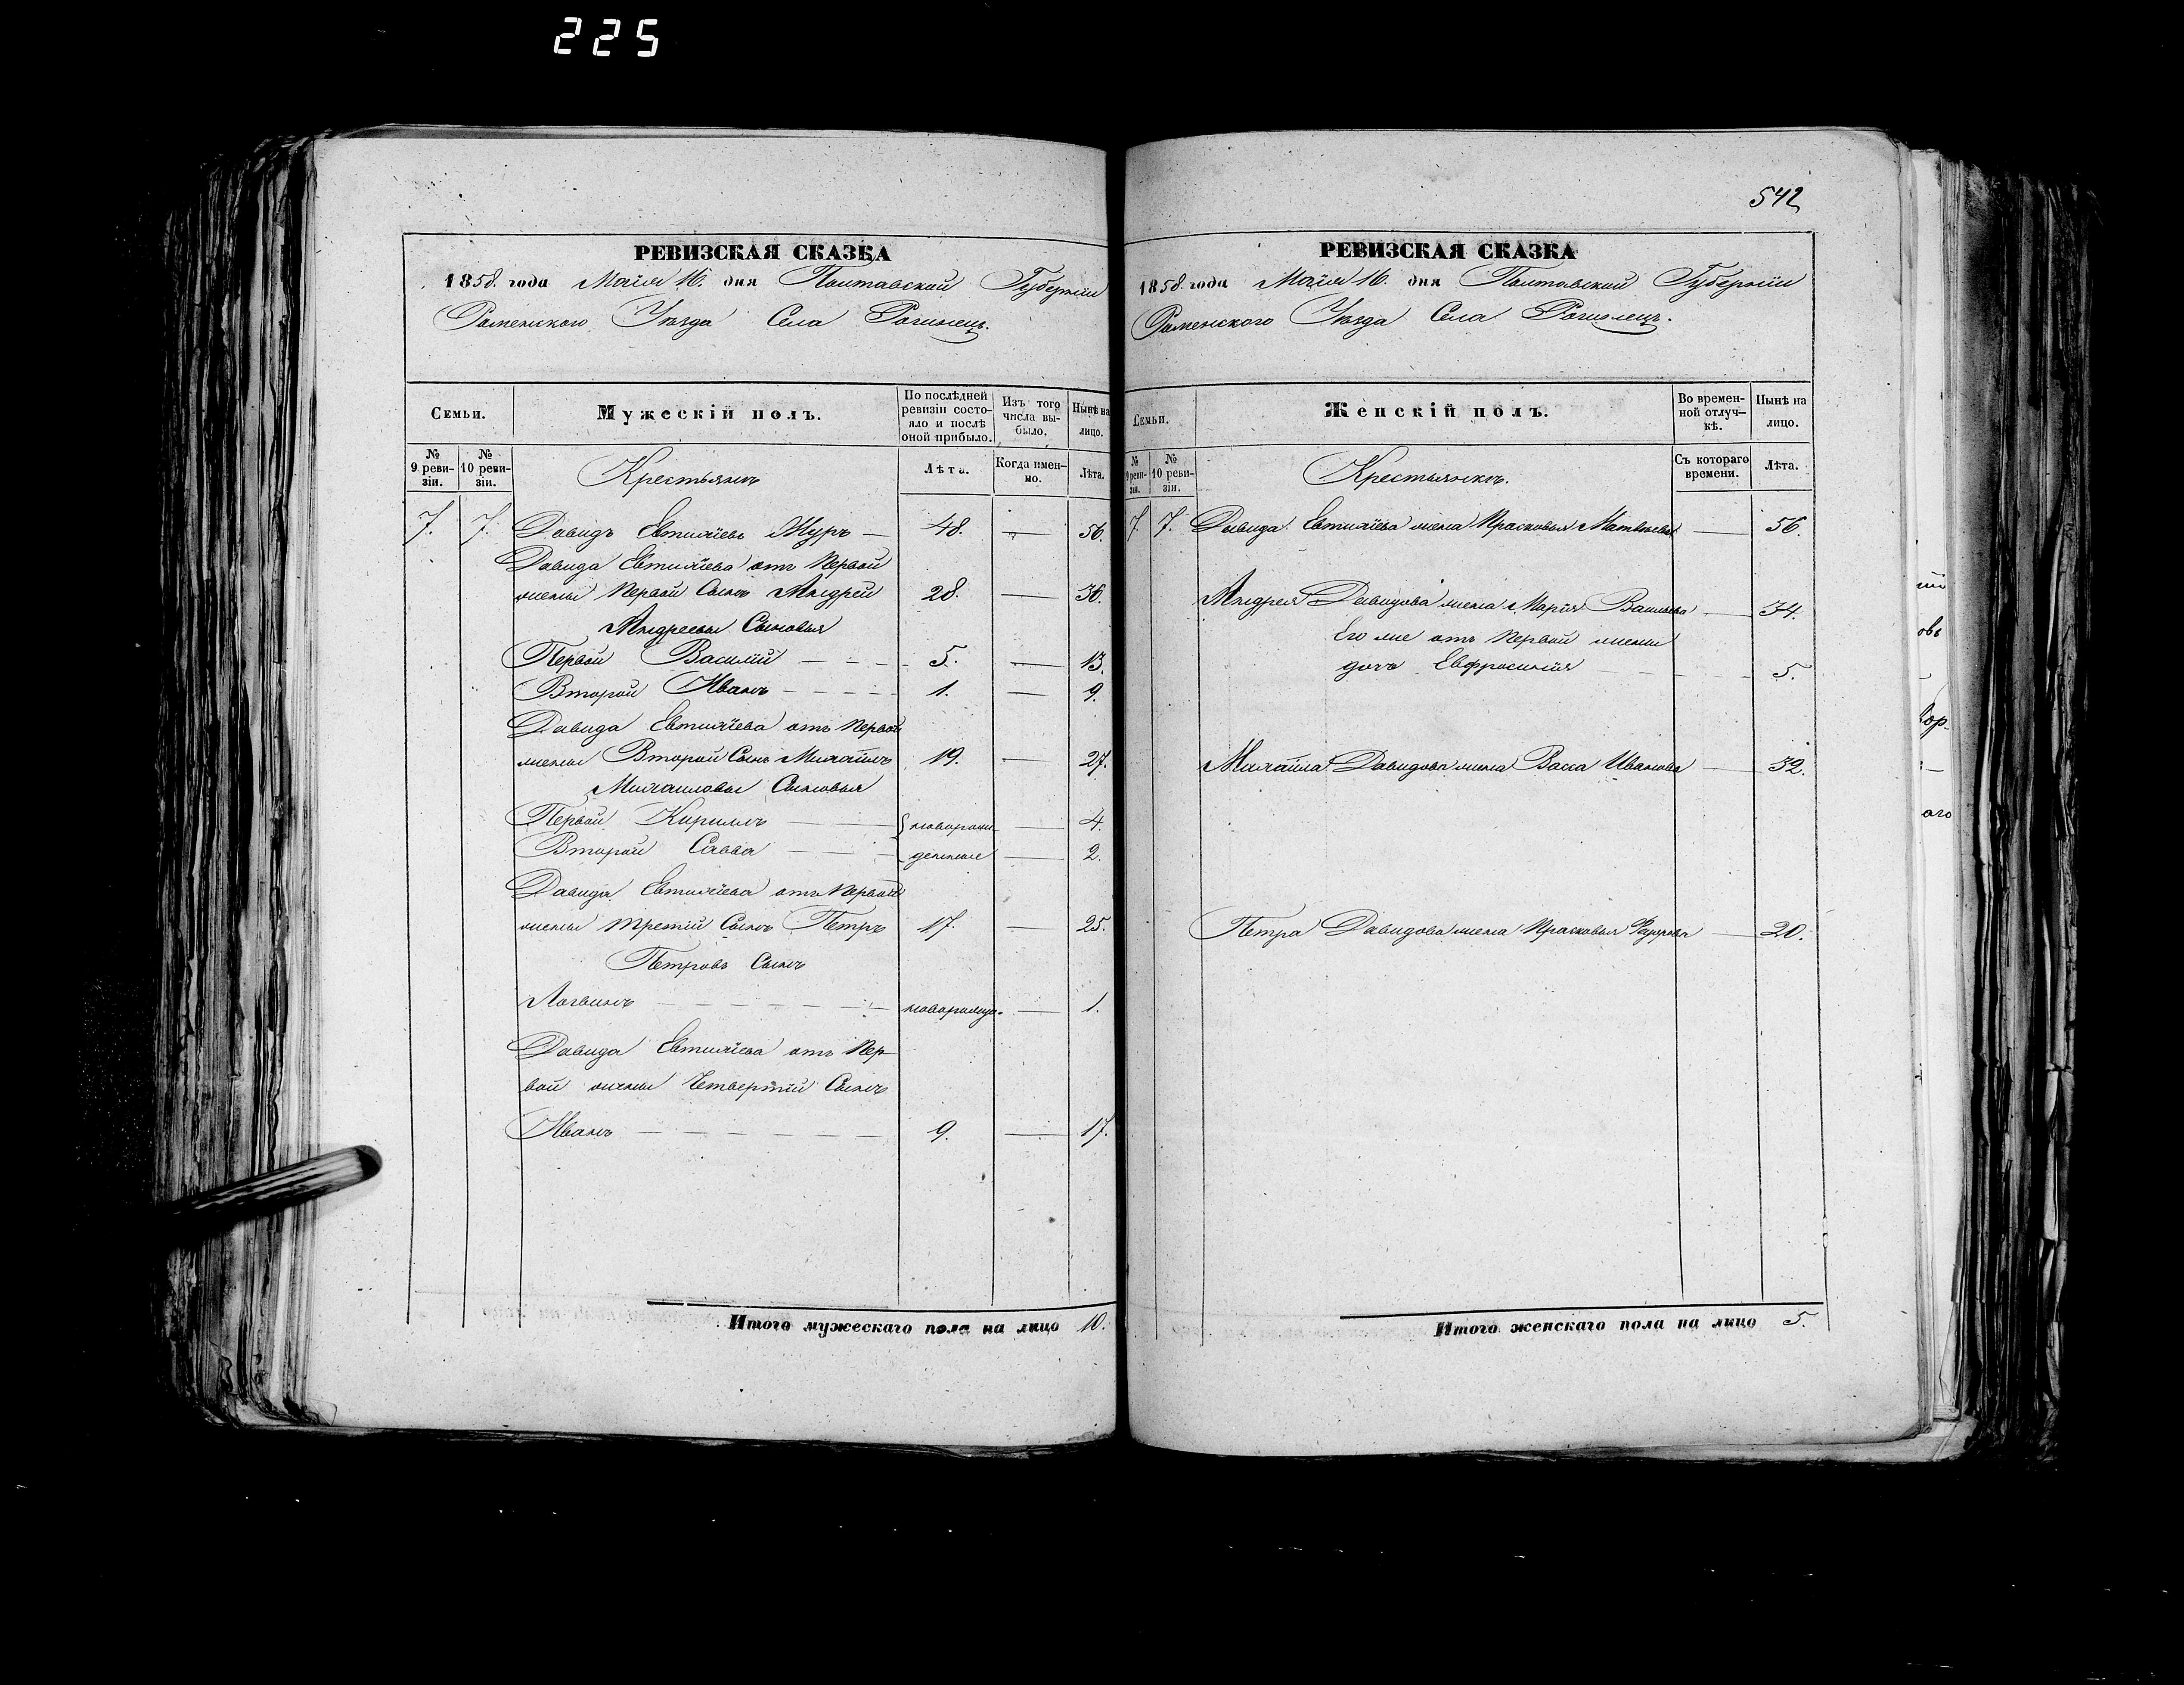 225
РЕВИЗСКАЯ СКАЗКА
1858. года Майя 16. дня Полтавской Губернiи
Роменского Уѣзда Села Рогинец.
Семьи.
Мужескiй полъ.
По послѣдней ревизiи состояло и послѣ оной прибыло.
Изъ того числа выбыло.
Нынѣ на лицо.
№ 9 ревизiи.
№ 10 ревизiи.
Крестьянъ
Лѣта.
Когда именно.
Лѣта.
7. 7. Давидъ Евтихiевъ Журъ — 48. — 56.
Давида Евтихiева отъ Первой
жены Первой Сынъ Андрей 28. — 36.
Андреевы Сыновья
Первой Василiй — 5. — 13.
Второй Иванъ — 1. — 9.
Давида Евтихiева отъ Первой
жены Второй Сынъ Михайлъ 19. — 27.
Михаиловы Сыновья
Первой Кирилъ — новорож- — 4.
Второй Савва — денные — 2.
Давида Евтихiева отъ Первой
жены третiй Сынъ Петръ 17. — 25.
Петровъ Сынъ
Логвинъ — новорожде. — 1.
Давида Евтихiева отъ Пер-
вой жены Четвертiй Сынъ
Иванъ — 9. — 17.
Итого мужескаго пола на лицо 10.
542
РЕВИЗСКАЯ СКАЗКА
1858. года Майя 16. дня Полтавской Губернiи
Роменского Уѣзда Села Рогинец.
Семьи.
Женскiй полъ.
Во временной отлучкѣ.
Нынѣ на лицо.
№ 9 ревизiи.
№ 10 ревизiи.
Крестьянкъ.
Съ котораго времени.
Лѣта.
7. 7. Давида Евтихiева жена Прасковья Матвѣева — 56.
Андрея Давидова жена Марiя Васильева — 34.
Его же отъ Первой жены
дочь Евфросинiя — 5.
Михайла Давидова жена Васса Иванова — 32.
Петра Давидова жена Прасковья Федорова — 20.
Итого женскаго пола на лицо 5.